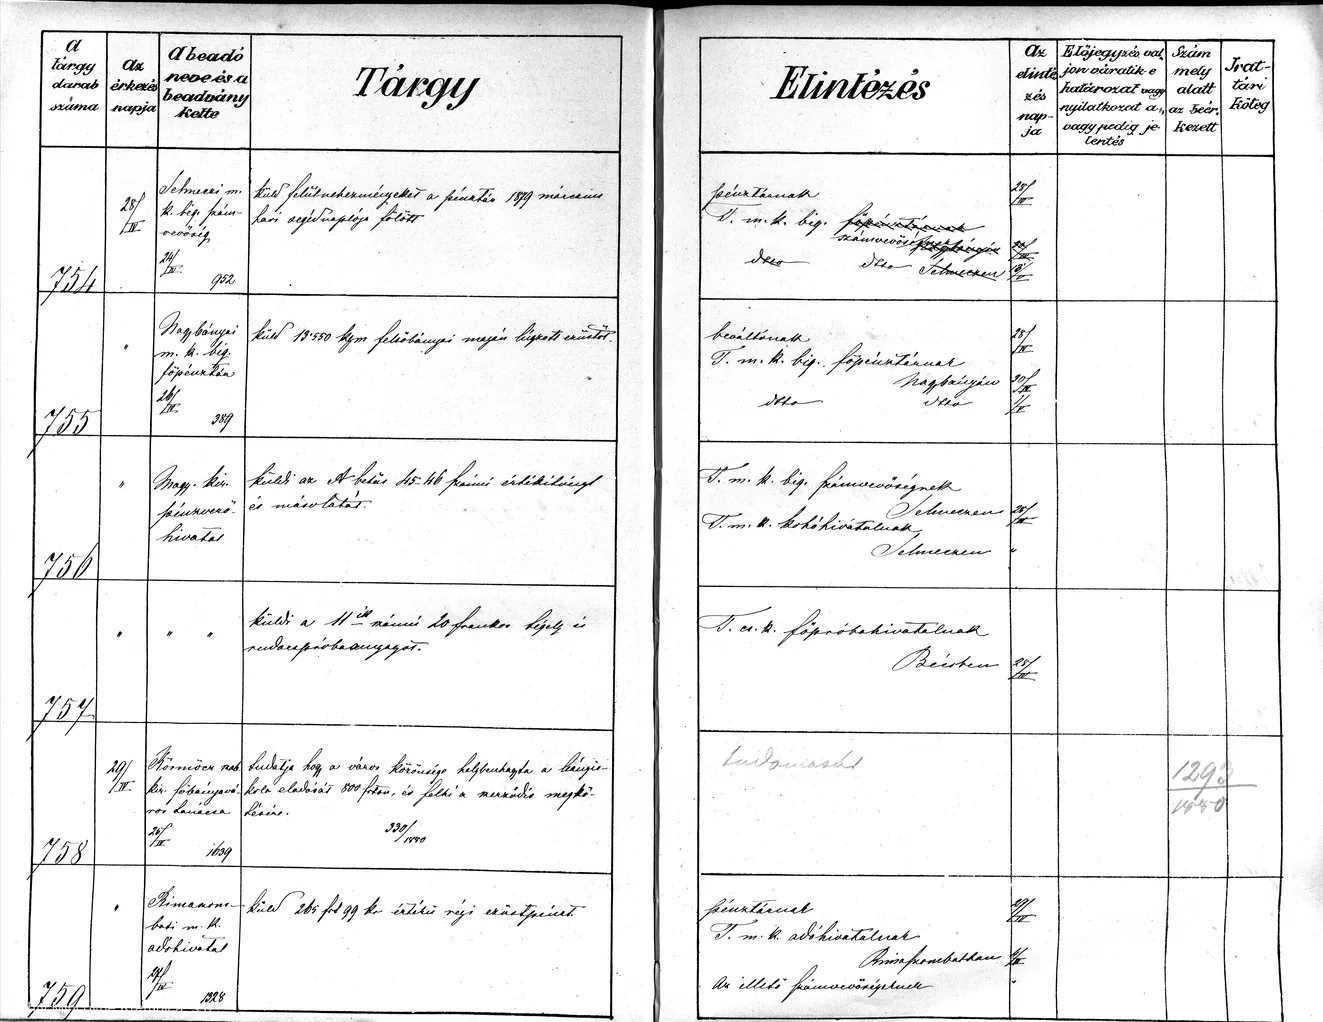 A tárgy darab száma
Az érkezés napja
A beadó neve és a beadvány kelte
Tárgy
Elintézés
Az elintézés napja
Előjegyzés valjon váratik-e határozat vagy nyilatkozat a., vagy pedig jelentés
Szám mely alatt az beérkezett
Irattári köteg
754
28/IV
Selmeczi m.
k. big. szám-
vevőség
24/IV
952
küld felülvéteményeket a pénztár 1879 márczius
havi segédnaplója fölött
pénztárnak
28/IV
T. m. k. big. főpénztárnak
számvevőségnek
dtto dtto Selmeczen
755
"
Nagybányai
m. k. big.
főpénztár
26/IV
389
küld 13·550 kgm felsőbányai magán lúgzott ezüstöt.
beváltónak
28/IV
T. m. k. big. főpénztárnak
Nagybányán
30/IV
dtto dtto
1/V
756
"
Magy. kir.
pénzverő-
hivatal
küldi az A betűs 45-46 számú értékítvényt
és másolatát.
T. m. k. big. számvevőségnek
Selmeczen
28/IV
T. m. k. kohóhivatalnak
Selmeczen "
757
" " "
küldi a 11ik számú 20 frankos tégely és
rudacspróbaanyagot.
T. cs. k. főpróbahivatalnak
Bécsben
28/IV
758
29/IV
Körmöcz szab.
kir. főbányavá-
ros tanácsa
25/IV
1639
tudatja hogy a város közönsége helybenhagyta a leányis-
kola eladását 800 forton, és felhí a szerződés megkö-
tésére.
330/1880
tudomásul
1293/1880
759
"
Rimaszom-
bati m. k.
adóhivatal
27/IV
1328
küld 265 frt 99 kr értékű régi ezüstpénzt.
pénztárnak
29/IV
T. m. k. adóhivatalnak
Rimaszombatban
Az illető számvevőségeknek "